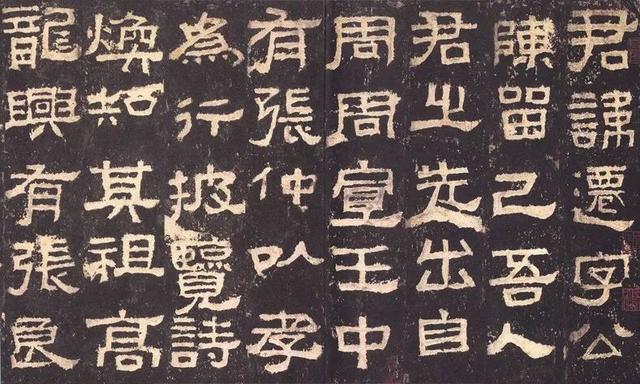 君諱遷字公
陳留己吾人
君之先出自
周周宣王中
有張仲以孝
為行披覽詩
煥知其祖高
龍興有張良